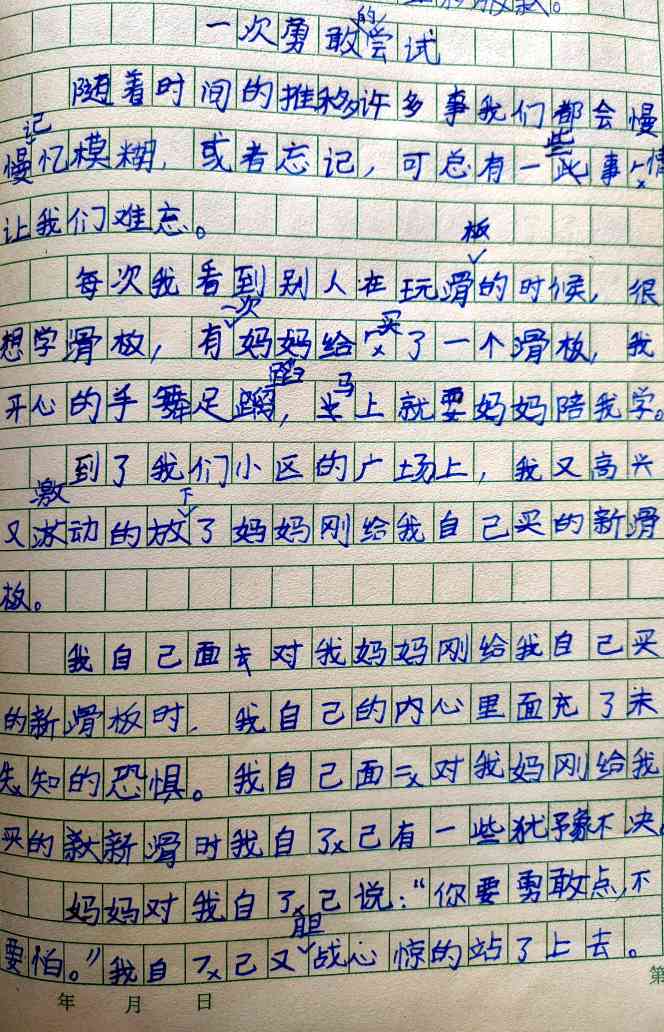 一次勇敢的尝试
随着时间的推移许多事我们都会慢
慢记忆模糊，或者忘记，可总有一些事情
让我们难忘。
每次我看到别人在玩滑板的时候，很
想学滑板，有一次妈妈给买了一个滑板，我
开心的手舞足蹈，马上就要妈妈陪我学。
到了我们小区的广场上，我又高兴
又激动的放下了妈妈刚给我自己买的新滑
板。
我自己面对我妈妈刚给我自己买
的新滑板时，我自己的内心里面充了未
知的恐惧。我自己面对我妈刚给我
买的新滑时我自己有一些犹豫不决
妈妈对我自己说：“你要勇敢点，不
要怕。”我自己又胆战心惊的站了上去。
年 月 日
第